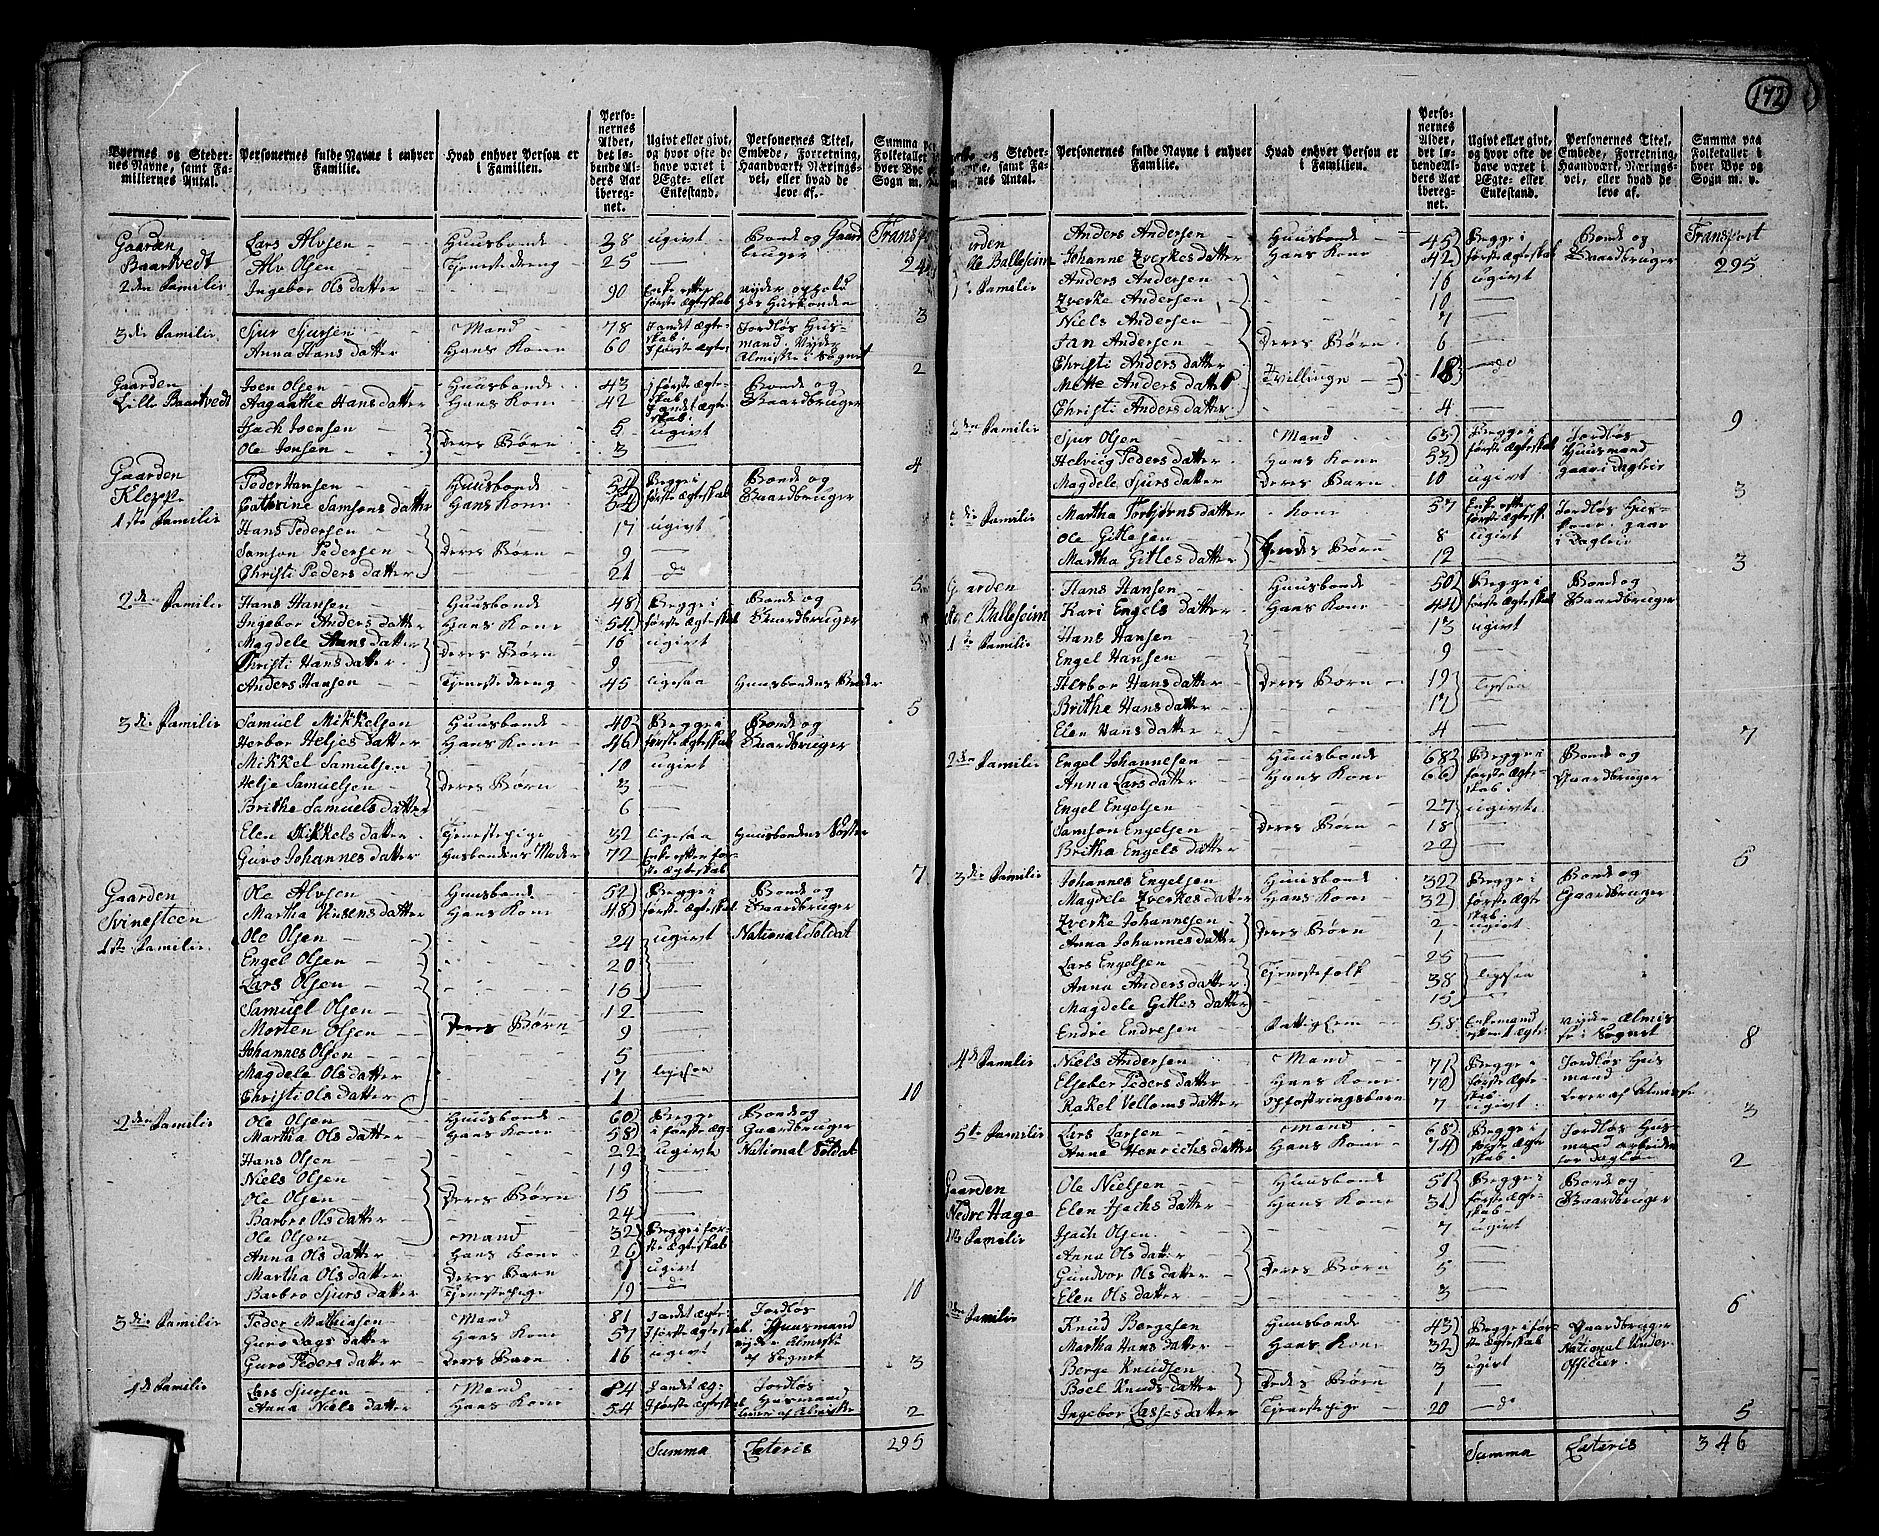 172
Byernes og Stedernes Navne, samt Familliernes Antal. | Personernes fulde Navne i enhver Familie. | Hvad enhver Person er i Familien. | Personernes Alder, det løbende Alders Aar iberegnet. | Ugivt eller givt, og hvor ofte de have været i Ægte- eller Enkestand. | Personernes Titel, Embede, Forretning, Haandværk, Næringsvei, eller hvad de leve af. | Summa paa Folketallet i hver Bye og Sogn m. v.
Gaarden | Lars Alvsen | Huusbonde | 28 | ugivt | Bonde og Gaardbruger | Transport
Baartvedt | Alv Olsen | Tjenestedreng | 25 | —
2den Familie | Ingebor Olsdatter | 90 | Enke efter første Ægteskab | 3
3die Familie | Sjur Sjursen | Mand | 78 | I andet Ægteskab | Jordløs Husmand. Nyder Almisse i Sognet
Anna Hans datter | Hans Kone | 60 | I første Ægte | 2
Gaarden | Joen Olsen | Huusbonde | 43 | i første Ægteskab | Bonde og Gaardbruger
Lille Baartvedt | Aagaathe Hansdatter | Hans Kone | 42 | I andet Ægteskab
Isach Joensen | 5 | ugivt
Ole Jonsen | Deres Børn | 3 | 4
Gaarden | Peder Hansen | Huusbonde | Begge i første Ægteskab | Bonde og Gaardbruger
Klepp | Cathrine Samsons datter | Hans Kone
1ste Familie | Hans Pedersen | 17 | ugivt
Samson Pedersen | Deres Børn | 9 | —
Christi Peders datter | 21 | do | 5
2den Familie | Hans Hansen | Huusbonde | 48 | Begge i første Ægteskab | Bonde og Gaardbruger
Ingebor Anders datter | Hans Kone | 54
Magdele Hans datter | Deres Børn | 16 | ugivt
Christi Hansdatter | 9 | —
Anders Hansen | Tjenestedreng | 45 | ligesaa | Huusbondens Broder | 5
3die Familie | Samuel Mikkelsen | Huusbonde | 40 | Begge i første Ægteskab | Bonde og Gaardbruger
Herbor Heljes datter | Hans Kone | 46
Mikkel Samuelsen | 10 | ugivt
Helje Samuelsen | Deres Børn | 3 | —
Brithe Samuels datter | 6 | —
Elen Mikkels datter | Tjenestepige | 32 | ligesaa | Huusbondens Søster
Guro Johannes datter | Husbondens Moder | 72 | Enke efter første Ægteskab | 7
Gaarden | Ole Alvsen | Huusbonde | 52 | Begge i første Ægteskab | Bonde og Gaardbruger
Svinesteen | Martha datter | Hans Kone | 48
1ste Familie | Ole Olsen | 24 | ugivt | National Soldat
Engel Olsen | 20 | —
Lars Olsen | 15 | —
Samuel Olsen | 12 | —
Morten Olsen | Deres Børn | 9 | —
Johannes Olsen | 5 | —
Magdele Olsdatter | 17 | ligesaa
Christi Olsdatter | 1 | — | 10
2den Familie | Ole Olsen | Huusbonde | 60 | Begge i første Ægteskab | Bonde og Gaardbruger
Martha Ols datter | Hans Kone | 58
Hans Olsen | 22 | ugivte | National Soldat
Niels Olsen | 19 | —
Ole Olsen | Deres Børn | 15 | —
Barbro Olsdatter | 24 | —
Ole Olsen | Mand | 32 | Begge i første Ægteskab
Anna Ols datter | Hans Kone | 26
Martha Ols datter | Deres Barn | 1 | ugivt
Barbro Sjurs datter | Tjenestepige | 19 | do | 10
3die Familie | Peder Mathiasen | Mand | 81 | I andet Ægte | Jordløs Huusmand nyder Almisse af Sognet
Guro Dags datter | Hans Kone | 57 | I første Ægteskab
Guro Peders datter | Deres Barn | 16 | ugivt | 3
4de Familie | Lars Sjursen | Mand | 84 | I andet Æg: | Jordløs Husmand lever af Almisse
Anna Niels datter | Hans Kone | 54 | I første Ægteskab | 2
Summa Lateris | 295
Byernes og Stedernes Navne, samt Familliernes Antal. | Personernes fulde Navne i enhver Familie. | Hvad enhver Person er i Familien. | Personernes Alder, det løbende Alders Aar iberegnet. | Ugivt eller givt, og hvor ofte de have været i Ægte- eller Enkestand. | Personernes Titel, Embede, Forretning, Haandværk, Næringsvei, eller hvad de leve af. | Summa paa Folketallet i hver Bye og Sogn m. v.
Anders Andersen | Huusbonde | 45 | Begge i første Ægteskab | Bonde og Gaardbruger | Transport
Balleseim | Johanne Zverkes datter | Hans Kone | 42 | 295
Familie | Anders Andersen | 16 | ugivt
Zverke Andersen | 10 | —
Niels Andersen | 7 | —
Jan Andersen | Deres Børn | 6 | —
Christi Anders datter | Tvillinge | 18 | do
Mette Anders datter
Christi Anders datter | 4 | — | 9
2den Familie | Sjur Olsen | Mand | 63 | Begge i første Ægteskab | Jordløs Huusmand gaar i Dagleie
Helvig Peders datter | Hans Kone | 53
Magdele Sjurs datter | Deres Barn | 10 | ugivt | 3
3die Familie | Martha Torbjørns datter | Kone | 57 | Enke efter første Ægtesk. | Jordløs Huskone gaar i Dagleie
Ole Gitlesen | Børn | 8 | ugivt
Martha Gitles datter | 12 | — | 3
Gaarden | Hans Hansen | Huusbonde | 50 | Begge i første Ægteskab | Bonde og Gaardbruger
Balleseim | Kari Engels datter | Hans Kone | 44
1ste Familie | Hans Hansen | 13 | ugivt
Engel Hansen | 9 | —
Herbor Hans datter | Deres Børn | 19 | ligesaa
Brithe Hans datter | 17
Elen Hans datter | 4 | — | 7
2den Familie | Engel Johannesen | Huusbonde | 68 | Begge i første Ægteskab | Bonde og Gaardbruger
Anna Lars datter | Hans Kone | 66
Engel Engelsen | 27 | ugivte
Samson Engelsen | Deres Børn | 18 | —
Britha Engels datter | 29 | — | 5
3die Familie | Johannes Engelsen | Huusbonde | 32 | Begge i første Ægteskab | Bonde og Gaardbruger
Magdele Zverkes datter | Hans Kone | 32
Zverke Johannesen | Deres Børn | 2 | ugivt
Anna Johannes datter | 1
Lars Engelsen | 25 | —
Anna Anders datter | Tjenestefolk | 38 | ligesaa
Magdele Gitles datter | 15 | —
Endre Endresen | Fattiglem | 58 | Enkemand efter 1 Ægte | nyder Almisse i Sognet | 8
4de Familie | Niels Andersen | Mand | 71 | Begge i første Ægteskab | Jordløs Husmand
Elseber Peders datter | Hans Kone | 70
Rakel Vellomsdatter | Opfostringsbarn | 7 | ugivt | Lever af Almisse | 3
5te Familie | Lars Larsen | Mand | 68 | Begge i første Ægteskab | Jordløs Husmand arbeider for Dagløn
Anne Henrichs datter | Hans Kone | 74 | 2
Gaarden | Ole Nielsen | Huusbonde | 51 | Begge i første Ægteskab | Bonde og Gaardbruger
Nedre Hage | Elen Isachs datter | Hans Kone | 31
1ste Familie | Isach Olsen | 7 | ugivt
Anna Ols datter | 9 | —
Gundvor Ols datter | Deres Børn | 5 | —
Elen Ols datter | 3 | — | 6
2den Familie | Knud Bergesen | Huusbonde | 43 | Begge i første Ægteskab | Gaardbruger National Under Officier.
Martha Hans datter | Hans Kone | 32
Berge Knudsen | 3 | ugivt
Boel Knuds datter | Deres Børn | 1 | —
Ingebor Lasses datter | Tjenestepige | 20 | do | 5
Summa Lateris | 346